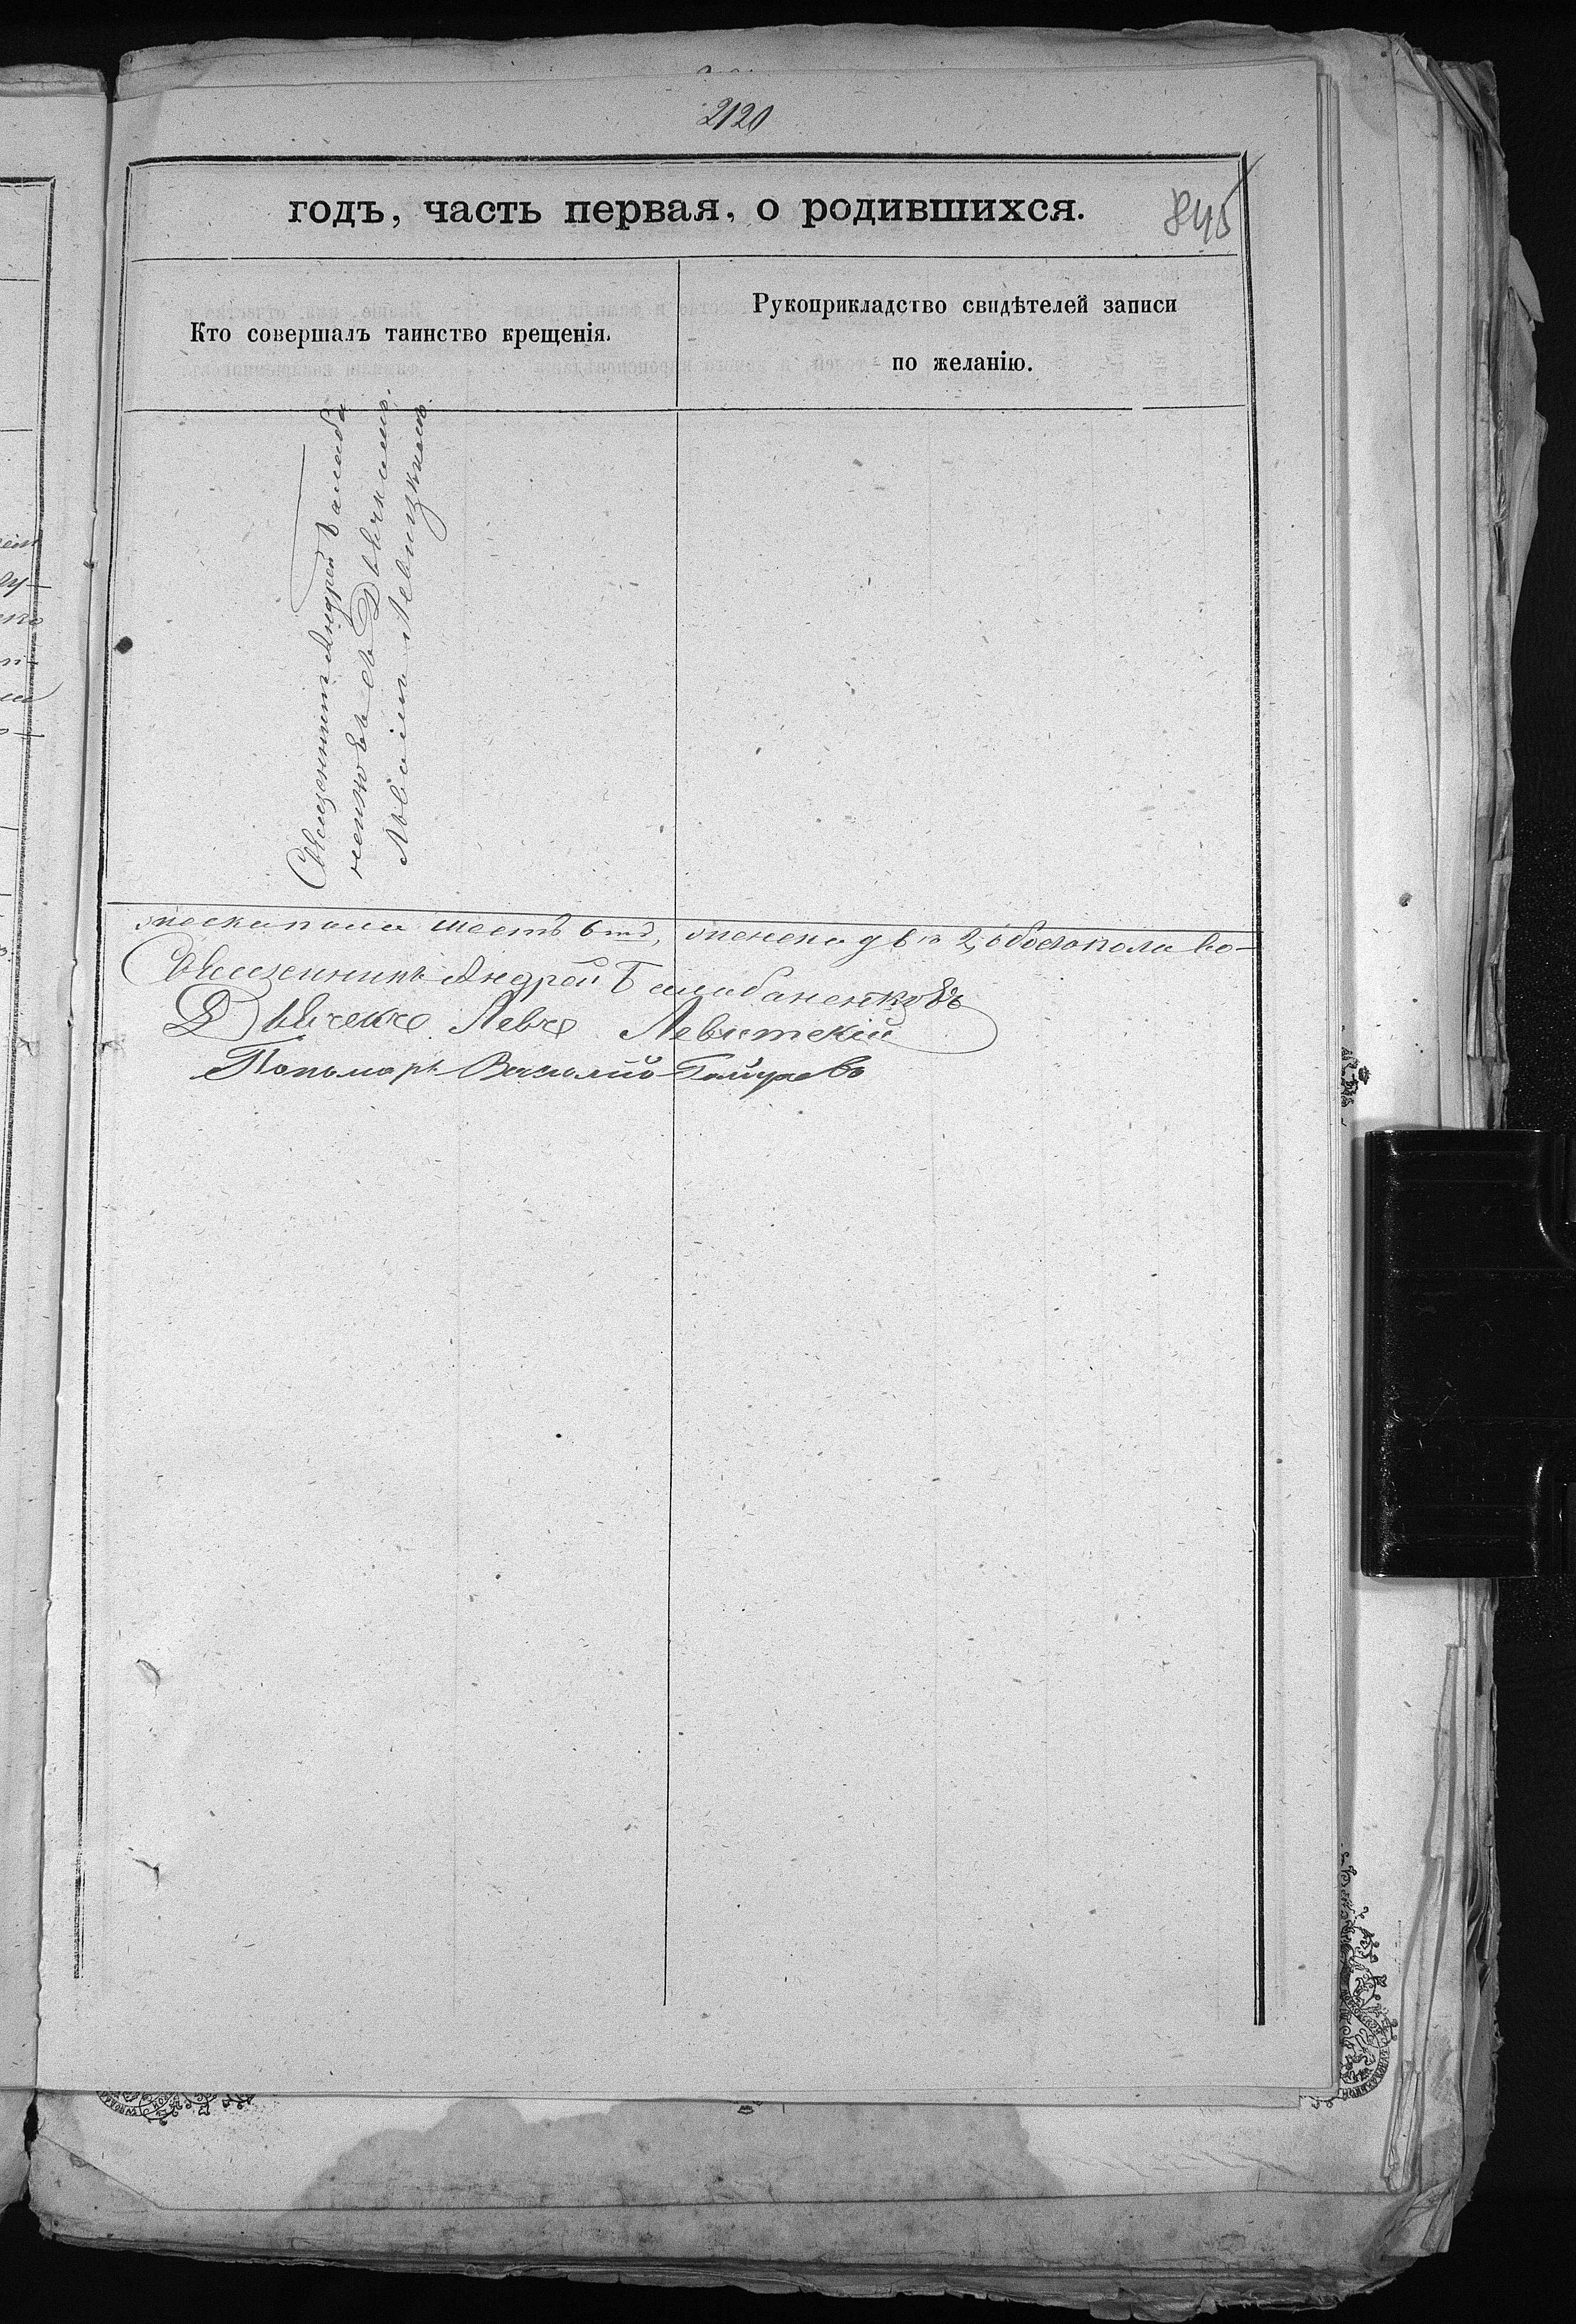 2120
годъ, часть первая, о родившихся.
845
Кто совершалъ таинство крещенія.
Рукоприкладство свидѣтелей записи
по желанію.
Священникъ Андрей Балаба
ненковъ съ Дьячкомъ
Львомъ Левицкимъ.
мескаполи шесть 6ть, женска две 2, обоегополи во-
Священникъ Андрей Балабаненковъ
Дьячекъ Левъ Левитскій
Пономарь Василій